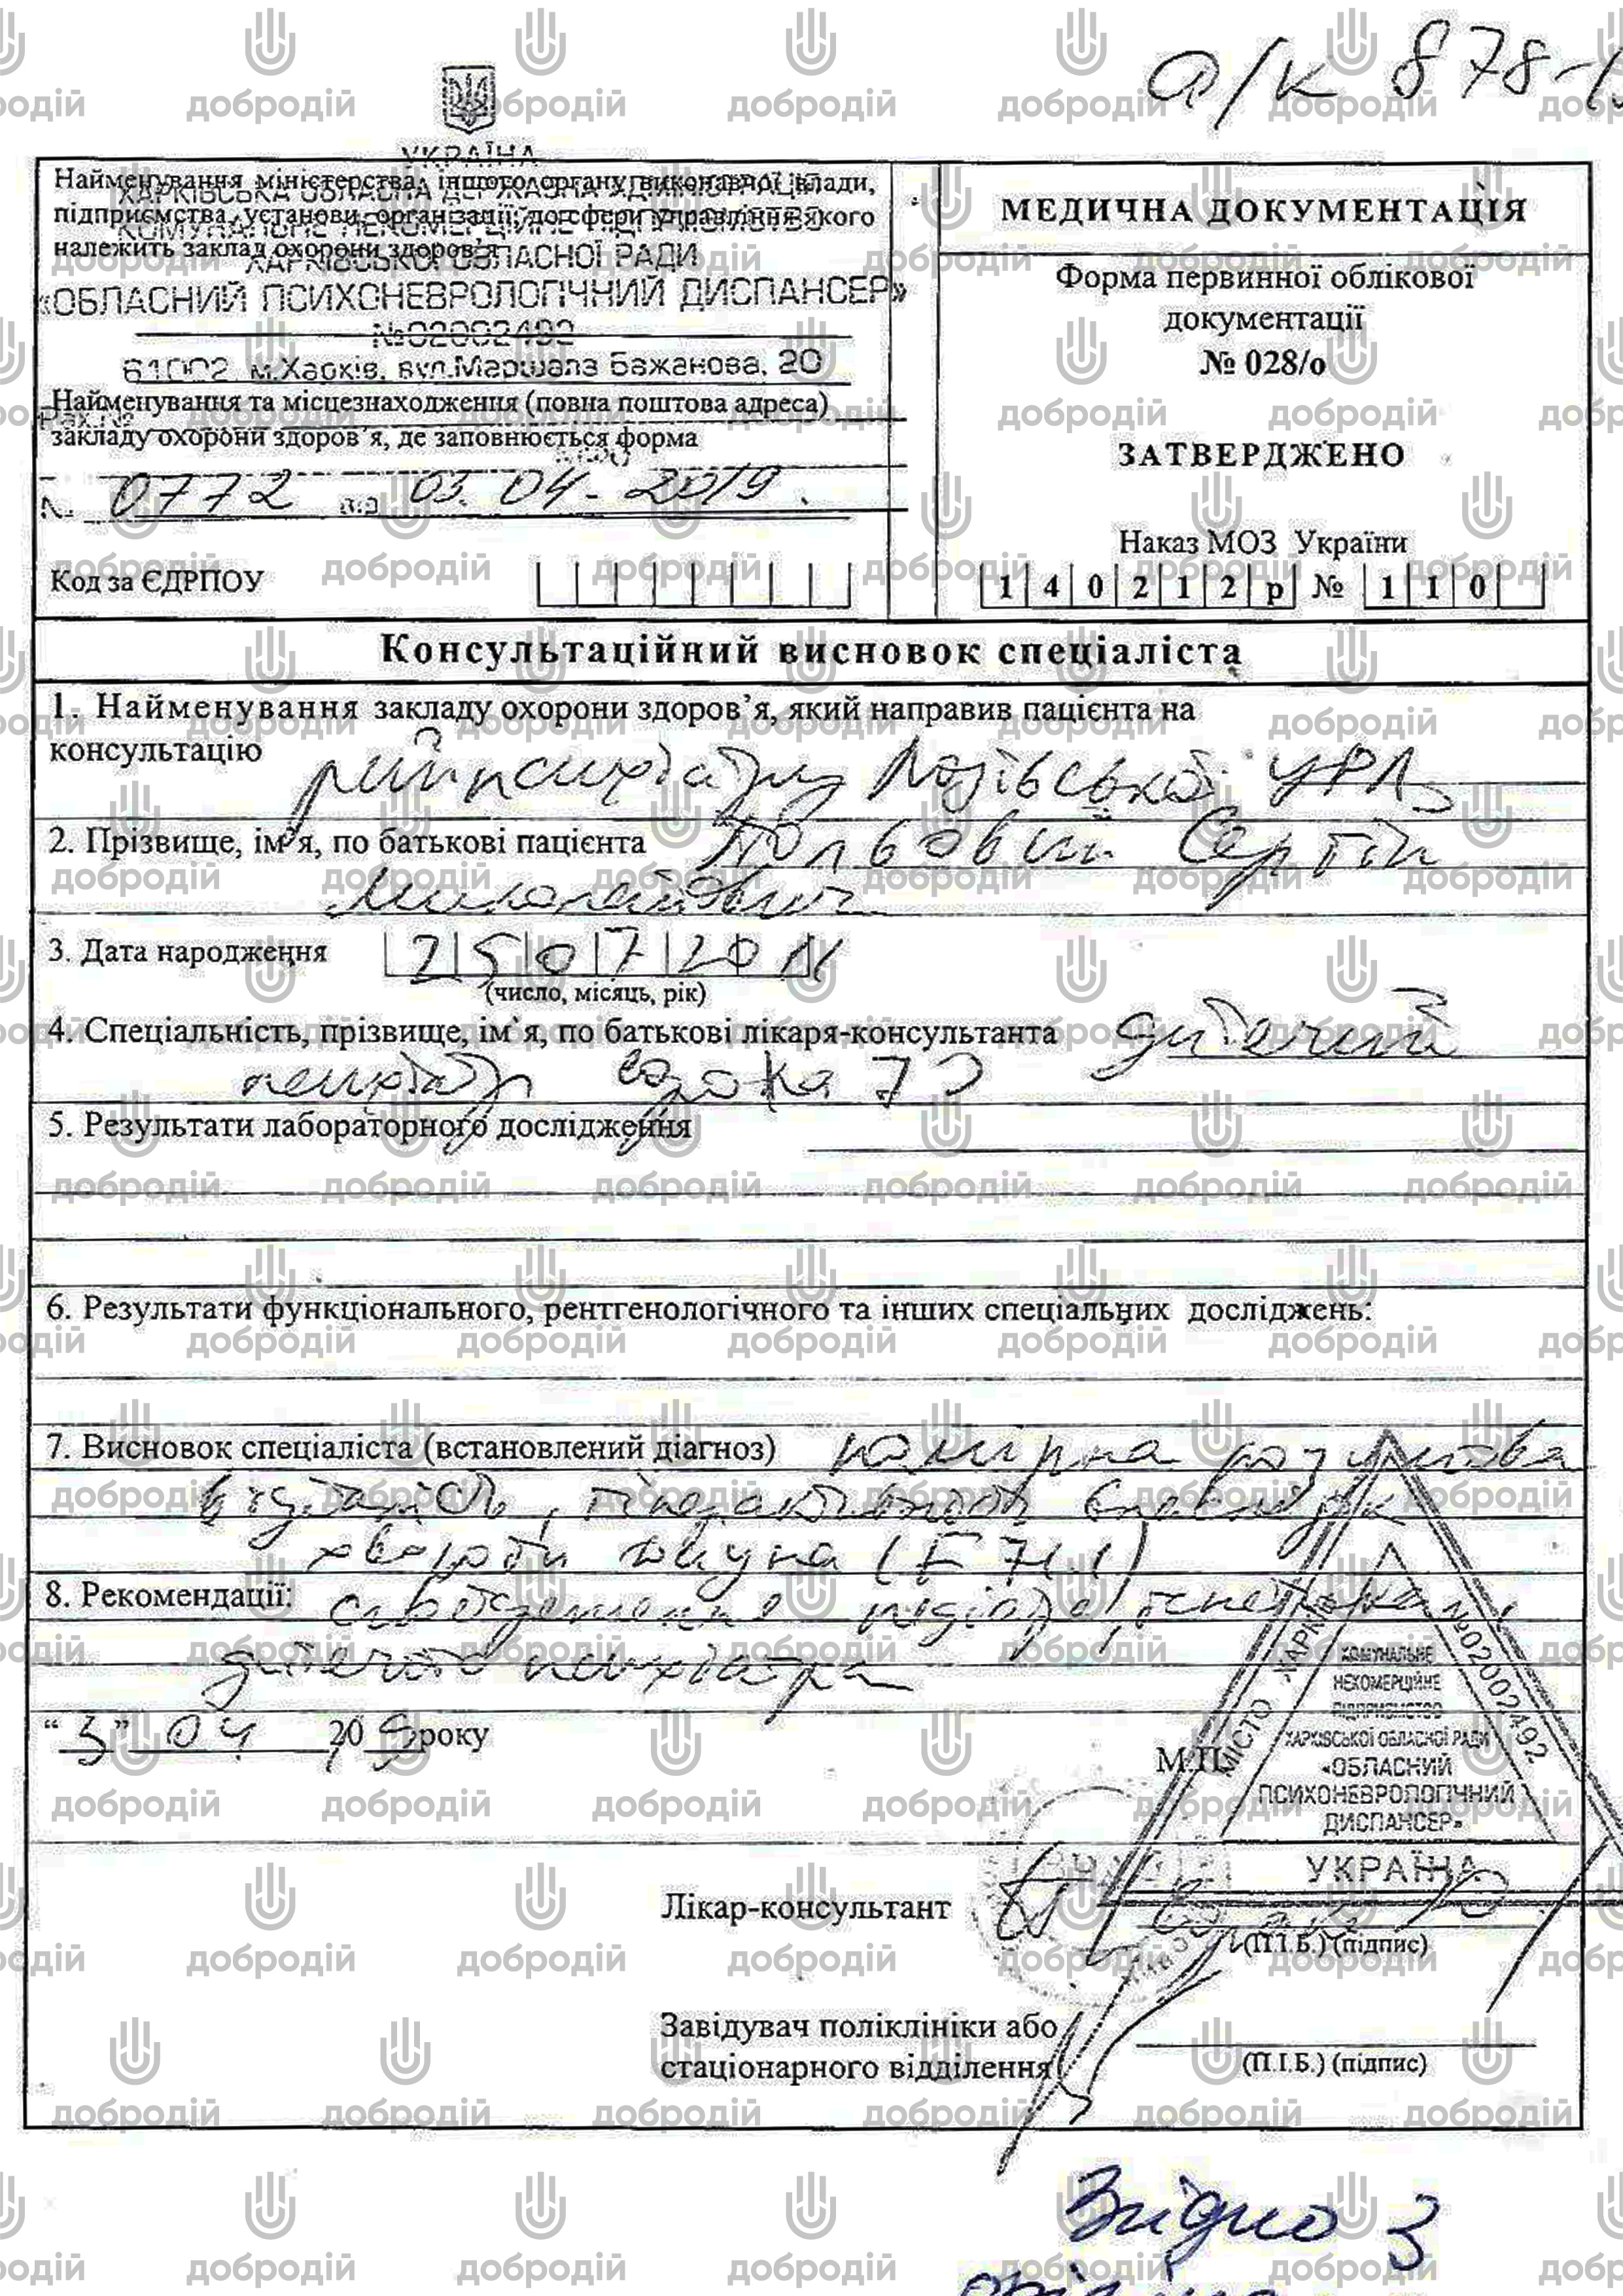 а/к 878-
УКРАЇНА
Найменування міністерства, іншого органу виконавчої влади,
підприємства, установи, організації, до сфери управління якого
належить заклад охорони здоров'я
ХАРКІВСЬКА ОБЛАСНА ДЕРЖАВНА АДМІНІСТРАЦІЯ
КОМУНАЛЬНЕ НЕКОМЕРЦІЙНЕ ПІДПРИЄМСТВО
ХАРКІВСЬКОЇ ОБЛАСНОЇ РАДИ
«ОБЛАСНИЙ ПСИХОНЕВРОЛОГІЧНИЙ ДИСПАНСЕР»
№02002492
61002, м.Харків, вул.Маршала Бажанова, 20
Найменування та місцезнаходження (повна поштова адреса)
закладу охорони здоров'я, де заповнюється форма
№ 0772 від 03.04.2019.
Код за ЄДРПОУ
МЕДИЧНА ДОКУМЕНТАЦІЯ
Форма первинної облікової
документації
№ 028/о
ЗАТВЕРДЖЕНО
Наказ МОЗ України
140212р № 110
Консультаційний висновок спеціаліста
1. Найменування закладу охорони здоров’я, який направив пацієнта на
консультацію райпсихіатр Лозівської ЦРЛ
2. Прізвище, ім’я, по батькові пацієнта Сергій
Миколайович
3. Дата народження 25072011
(число, місяць, рік)
4. Спеціальність, прізвище, ім`я, по батькові лікаря-консультанта дитячий
психіатр
5. Результати лабораторного дослідження
6. Результати функціонального, рентгенологічного та інших спеціальних досліджень:
7. Висновок спеціаліста (встановлений діагноз) помірна розумова
відсталість, гіперактивність внаслідок
хвороби Дауна (F 71.1)
8. Рекомендації: спостереження педіатра, генетика,
дитячого психіатра
“3” 04 2019 року
М.П.
МІСТО ХАРКІВ
№02002492
КОМУНАЛЬНЕ
НЕКОМЕРЦІЙНЕ
ПІДПРИЄМСТВО
ХАРКІВСЬКОЇ ОБЛАСНОЇ РАДИ
«ОБЛАСНИЙ
ПСИХОНЕВРОЛОГІЧНИЙ
ДИСПАНСЕР»
УКРАЇНА
Лікар-консультант
(П.І.Б.) (підпис)
Завідувач поліклініки або
стаціонарного відділення
(П.І.Б.) (підпис)
Згідно з
добродій